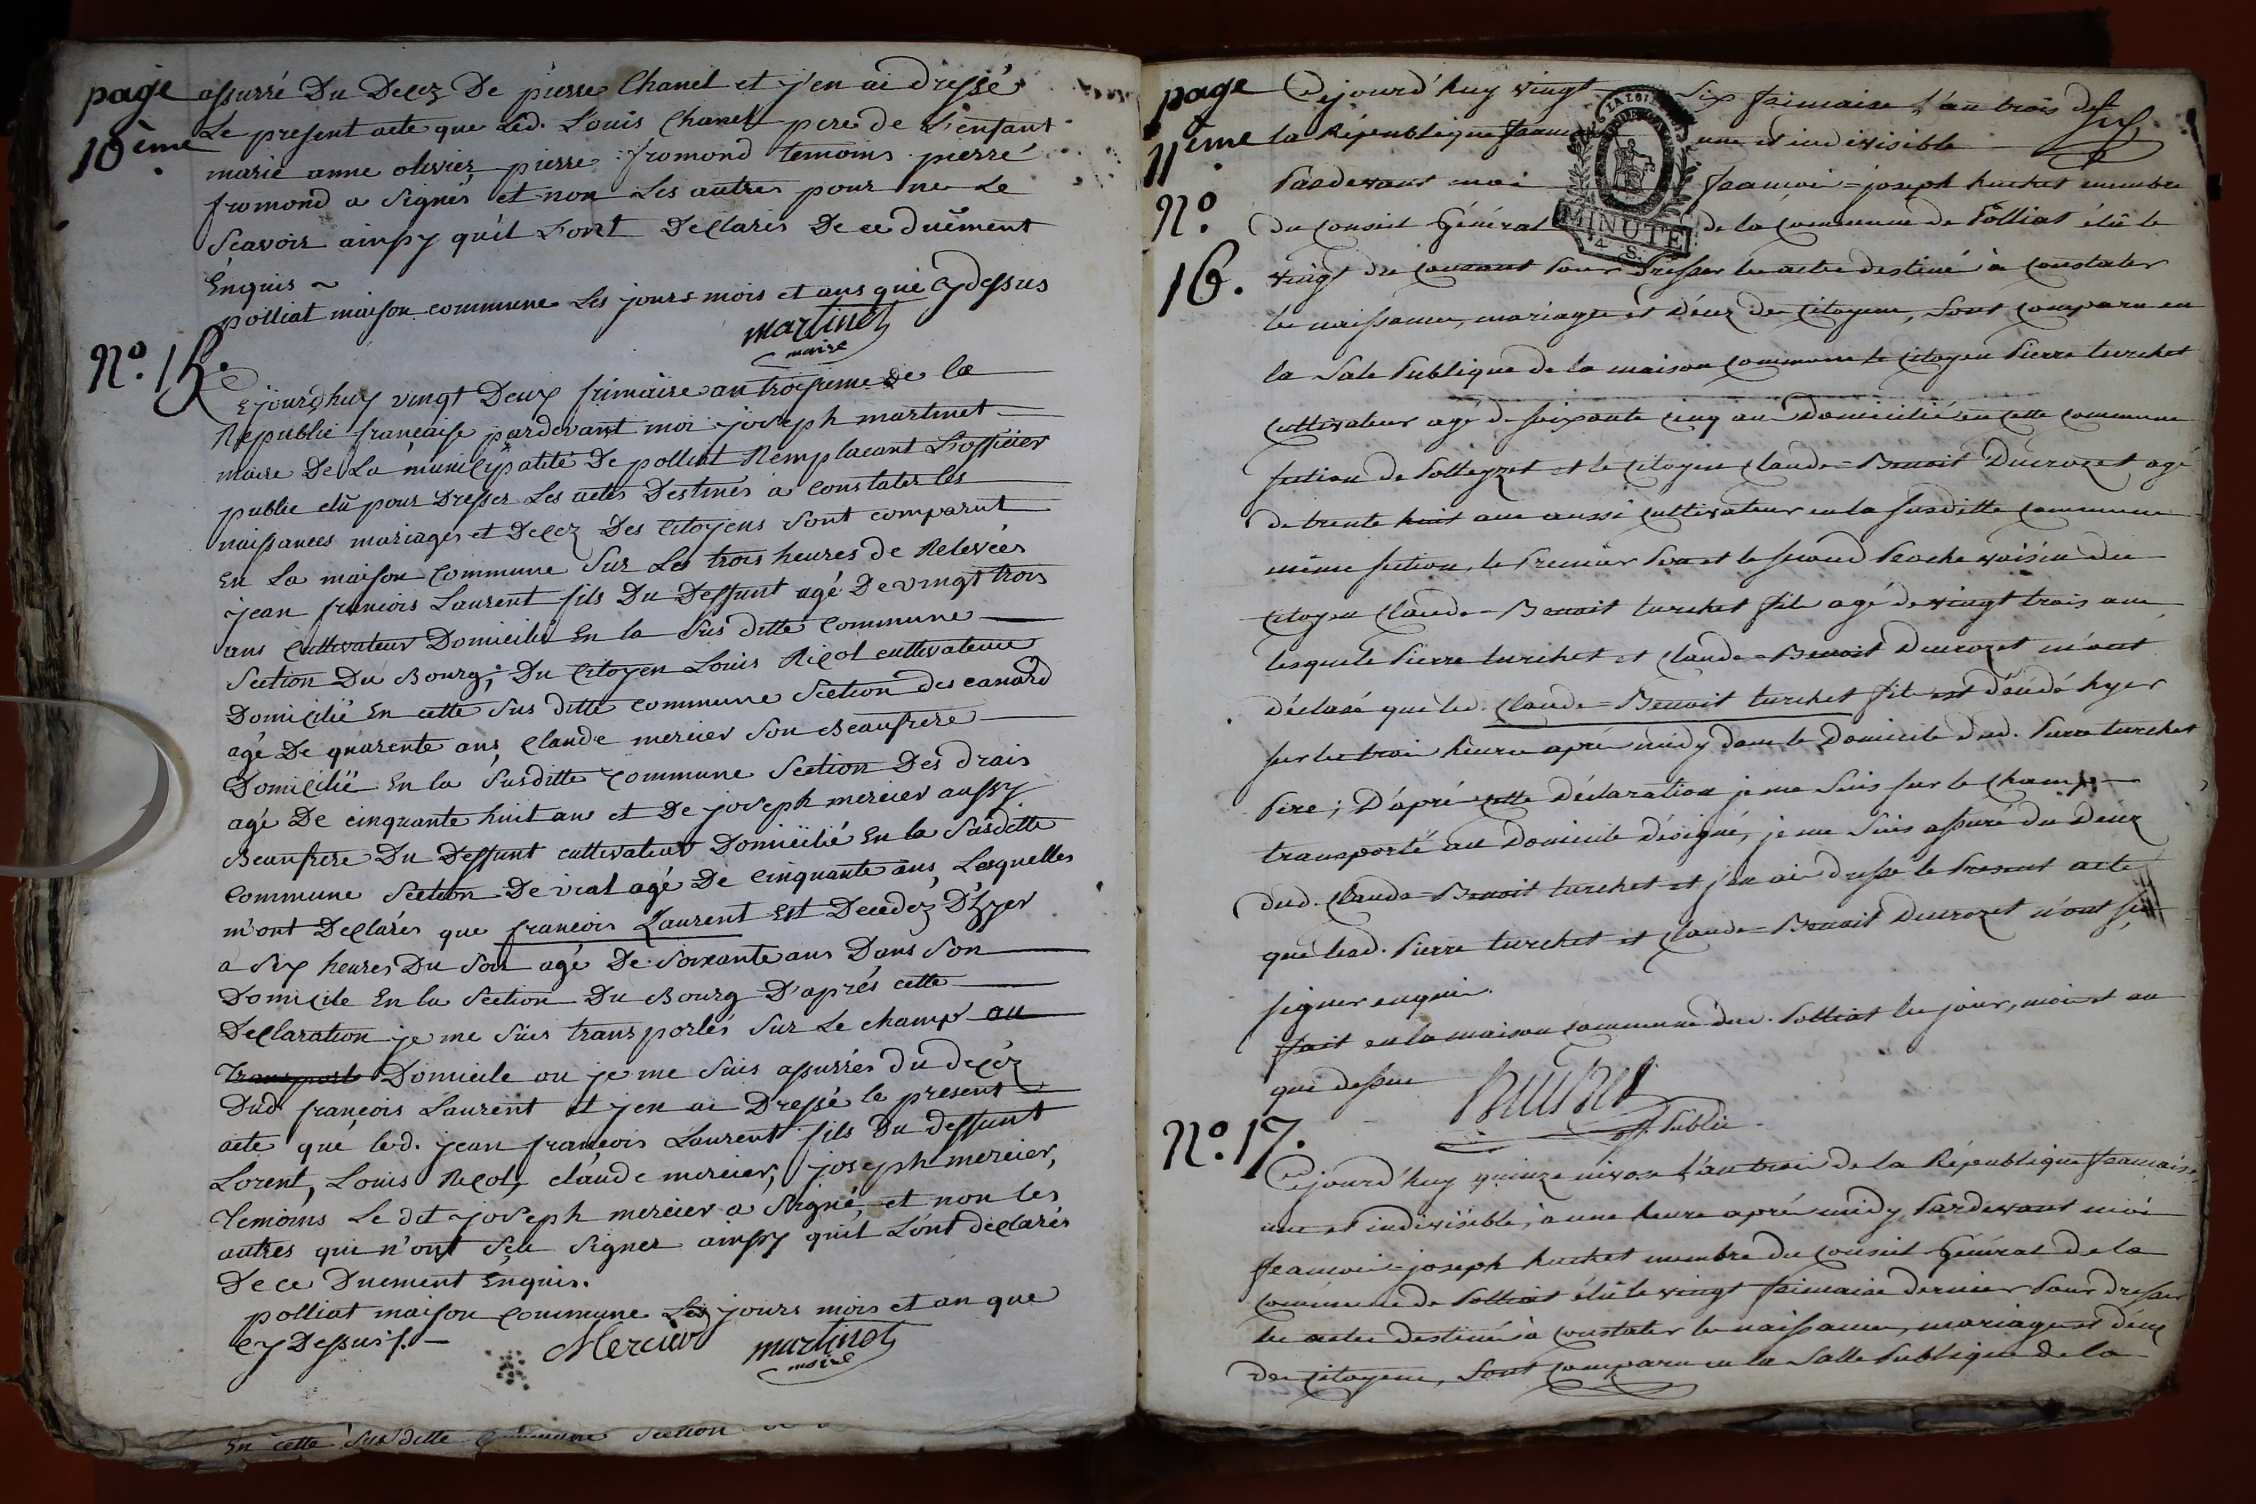 page
10ème
assurré Du Decez De pierre Chanel et j'en ai Dressé
Le present acte que Led. Louis Chanel pere de L'enfant
marie anne olivier pierre fromond temoins pierre
fromond a signés et non Les autres pour ne Le
Scavoir ainsy qu'il L'ont Declarés De ce duëment
Enquis ~
polliat maison commune Les jours mois et ans que cy dessus
martinet
maire
N.º 15.
Cejourdhuy vingt Deux frimaire an troisieme de la
Republie française pardevant moi joseph martinet
maire De La municipalité De polliat Remplacant L'officier
public elû pour Dresser Les actes Destinés a Constater les
naissances mariages et Decez Des Citoyens Sont comparut
En La maison Commune Sur Les trois heures de Relevées
jean francois Laurent fils Du Deffunt agé De vingt trois
ans Cultivateur Domicilié En la Sus ditte Commune
Section Du Bourg; Du Citoyen Louis Ricol cultivateur
Domicilié En cette Sus ditte commune Section des canard
agé De quarente ans, Claude mercier Son Beaufrere
Domicilié En la Susditte Commune Section Des drais
agé De cinquante huit ans et De joseph mercier aussy
Beaufrere Du Deffunt cultivateur Domicilié En la Susditte
Commune Section De vial agé De Cinquante ans, Lesquelles
m'ont Declarés que francois Laurent Est Decedez D'hyer
a Six heures Du Soir agé De Soixante ans Dans Son
Domicile En la Section Du Bourg D'aprés cette
Declaration je me Süis transportés Sur Le champ au
transport Domicile ou je me Suis assurrés du decéz
Dud francois Laurent et j'en ai Dressé le present
acte que led. jean francois Laurent fils Du deffunt
Lorent, Louis Ricol, claude mercier, joseph mercier,
Temoins Le dit joseph mercier a Signé, et non les
autres qui n'ont Sçu Signer ainsy qu'il L'ont declarés
De ce Duement Enquis.
polliat maison Commune Les jours mois et an que
Cy Dessus ./.
Mercier
martinet
maire
En cette Susditte Commune Section
page
11ème
N.º
16.
Cejourd'huy vingt Six frimaire l'an trois de
la République française une et indivisible
Pardevant moi françois=joseph huchet membre
du Conseil Général de la Commune de Polliat élû le
MINUTE
vingt du Courant Pour Dresser les actes destinés à Constater
les naissances, mariages et Décez des Citoyens, Sont Comparu en
la Sale Publique de la maison Commune le Citoyen Pierre turchet
Cultivateur agé de soixante Cinq ans Domicilié en cette commune
section de Polleyzet et le Citoyen Claude=Benoit Ducrozet agé
de trente huit ans aussi Cultivateur en la susditte Commune
même section, le Premier Pere et le second Proche voisin du
Citoyen Claude=Benoit turchet fils agé de vingt trois ans
lesquels Pierre turchet et Claude=Benoit Ducrozet m'ont
déclaré que led. Claude=Benoit turchet fils est décédé hyer
sur les trois heures après midy dans le Domicile dud. Pierre turchet
Pere; D'après cette Déclaration je me Suis sur le Champ
transporté au Domicile désigné, je me Suis assuré du Décéz
dud. Claude=Benoit turchet et j'en ai dressé le Présent acte
que lesd. Pierre turchet et Claude=Benoit Ducrozet n'ont sçu
signer enquis.
fait en la maison commune dud. Polliat les jour, mois et an
que dessus
huchet
off. Public
N.º 17.
Cejourd'huy quinze nivose l'an trois de la République française
une et indivisible, à une heure après midy, Pardevant moi
françois=joseph huchet membre du Conseil Général de la
Commune de Polliat élû le vingt frimaire dernier Pour dresser
les actes destinés à Constater les naissances, mariages et decez
des Citoyens, Sont Comparu en la Salle Publique de la